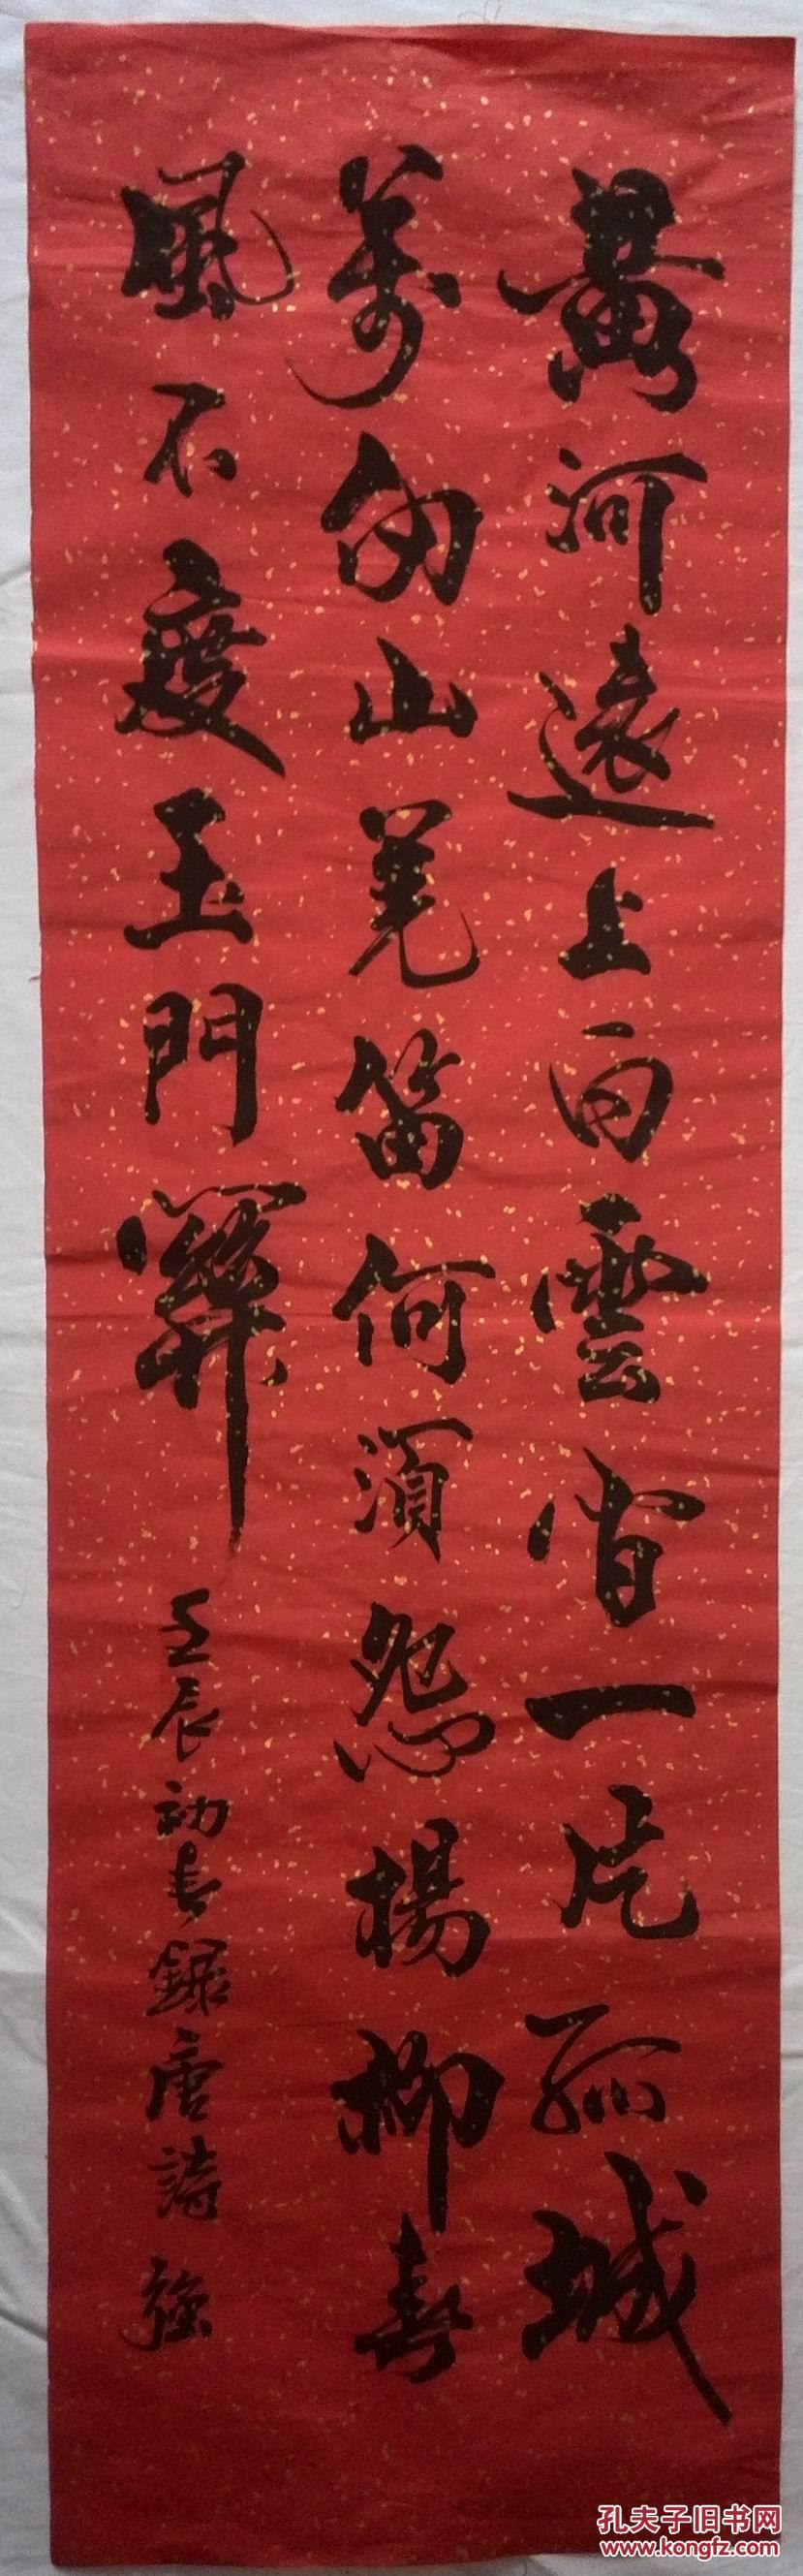 黃河遠上白雲間一片孤城
萬仞山羌笛何須怨楊柳春
風不度玉門關
壬辰初春錄唐詩 強
孔夫子旧书网
www.kongfz.com